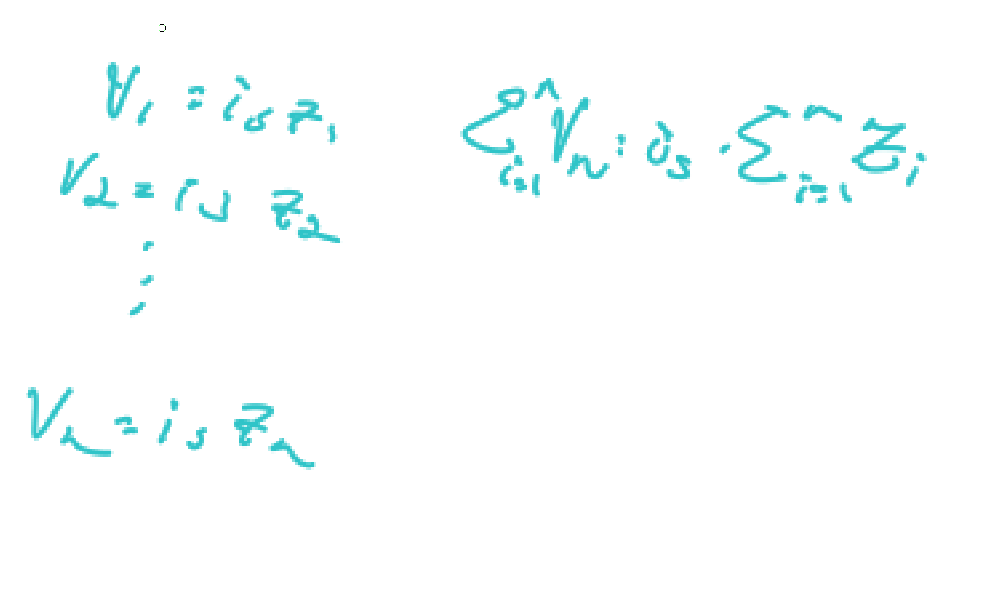 V₁ = i_s z₁
V₂ = i_s z₂
⋮
Vₙ = i_s zₙ
∑ⁿᵢ₌₁ Vₙ = i_s · ∑ⁿᵢ₌₁ Zᵢ